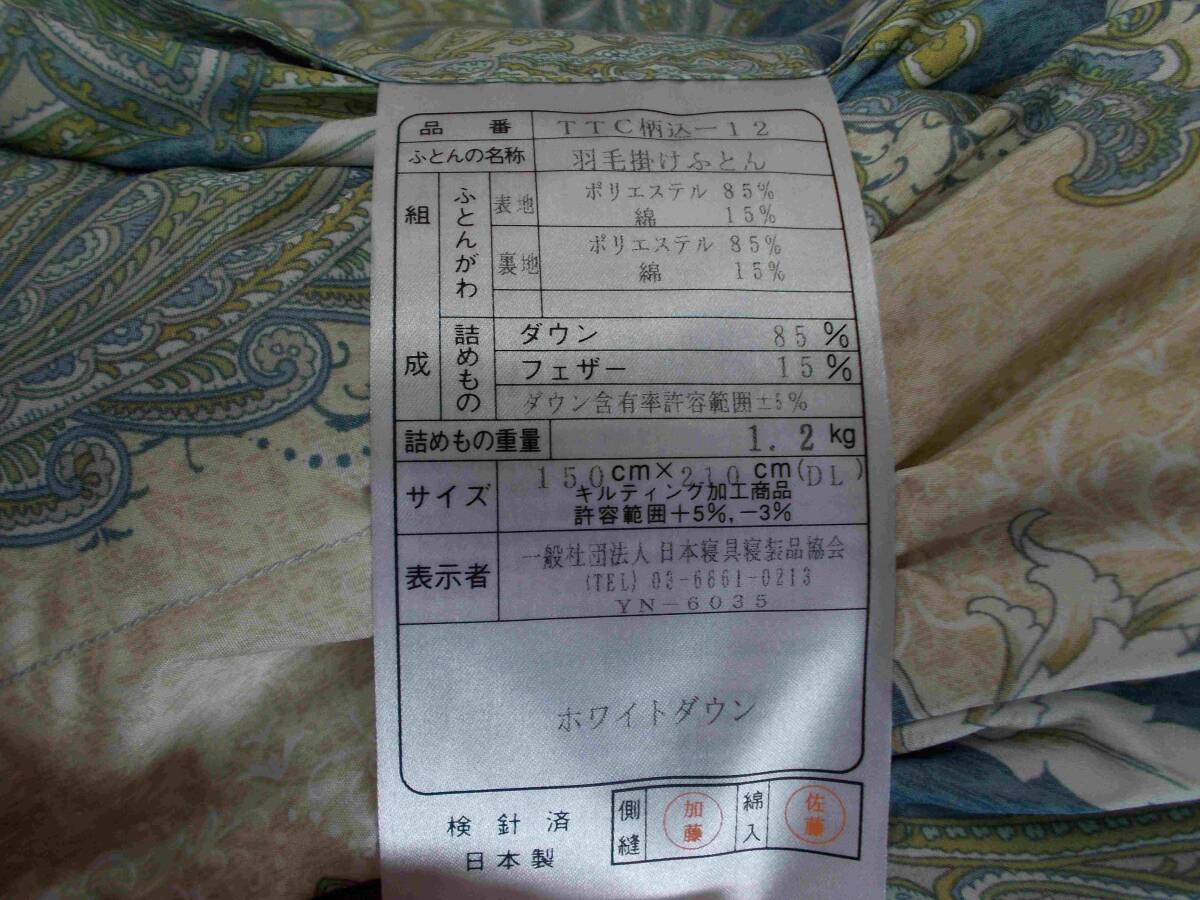 品番 TTC柄込-12
ふとんの名称 羽毛掛けふとん
組成 ふとんがわ 表地 ポリエステル 85%
綿 15%
裏地 ポリエステル 85%
綿 15%
詰めもの ダウン 85%
フェザー 15%
ダウン含有率許容範囲±5%
詰めもの重量 1.2kg
サイズ 150cm×210cm(DL)
キルティング加工商品
許容範囲+5%,-3%
表示者 一般社団法人 日本寝具寝装品協会
(TEL) 03-6661-0213
YN-6035
ホワイトダウン
検針済
日本製
側縫 加藤 綿入 佐藤